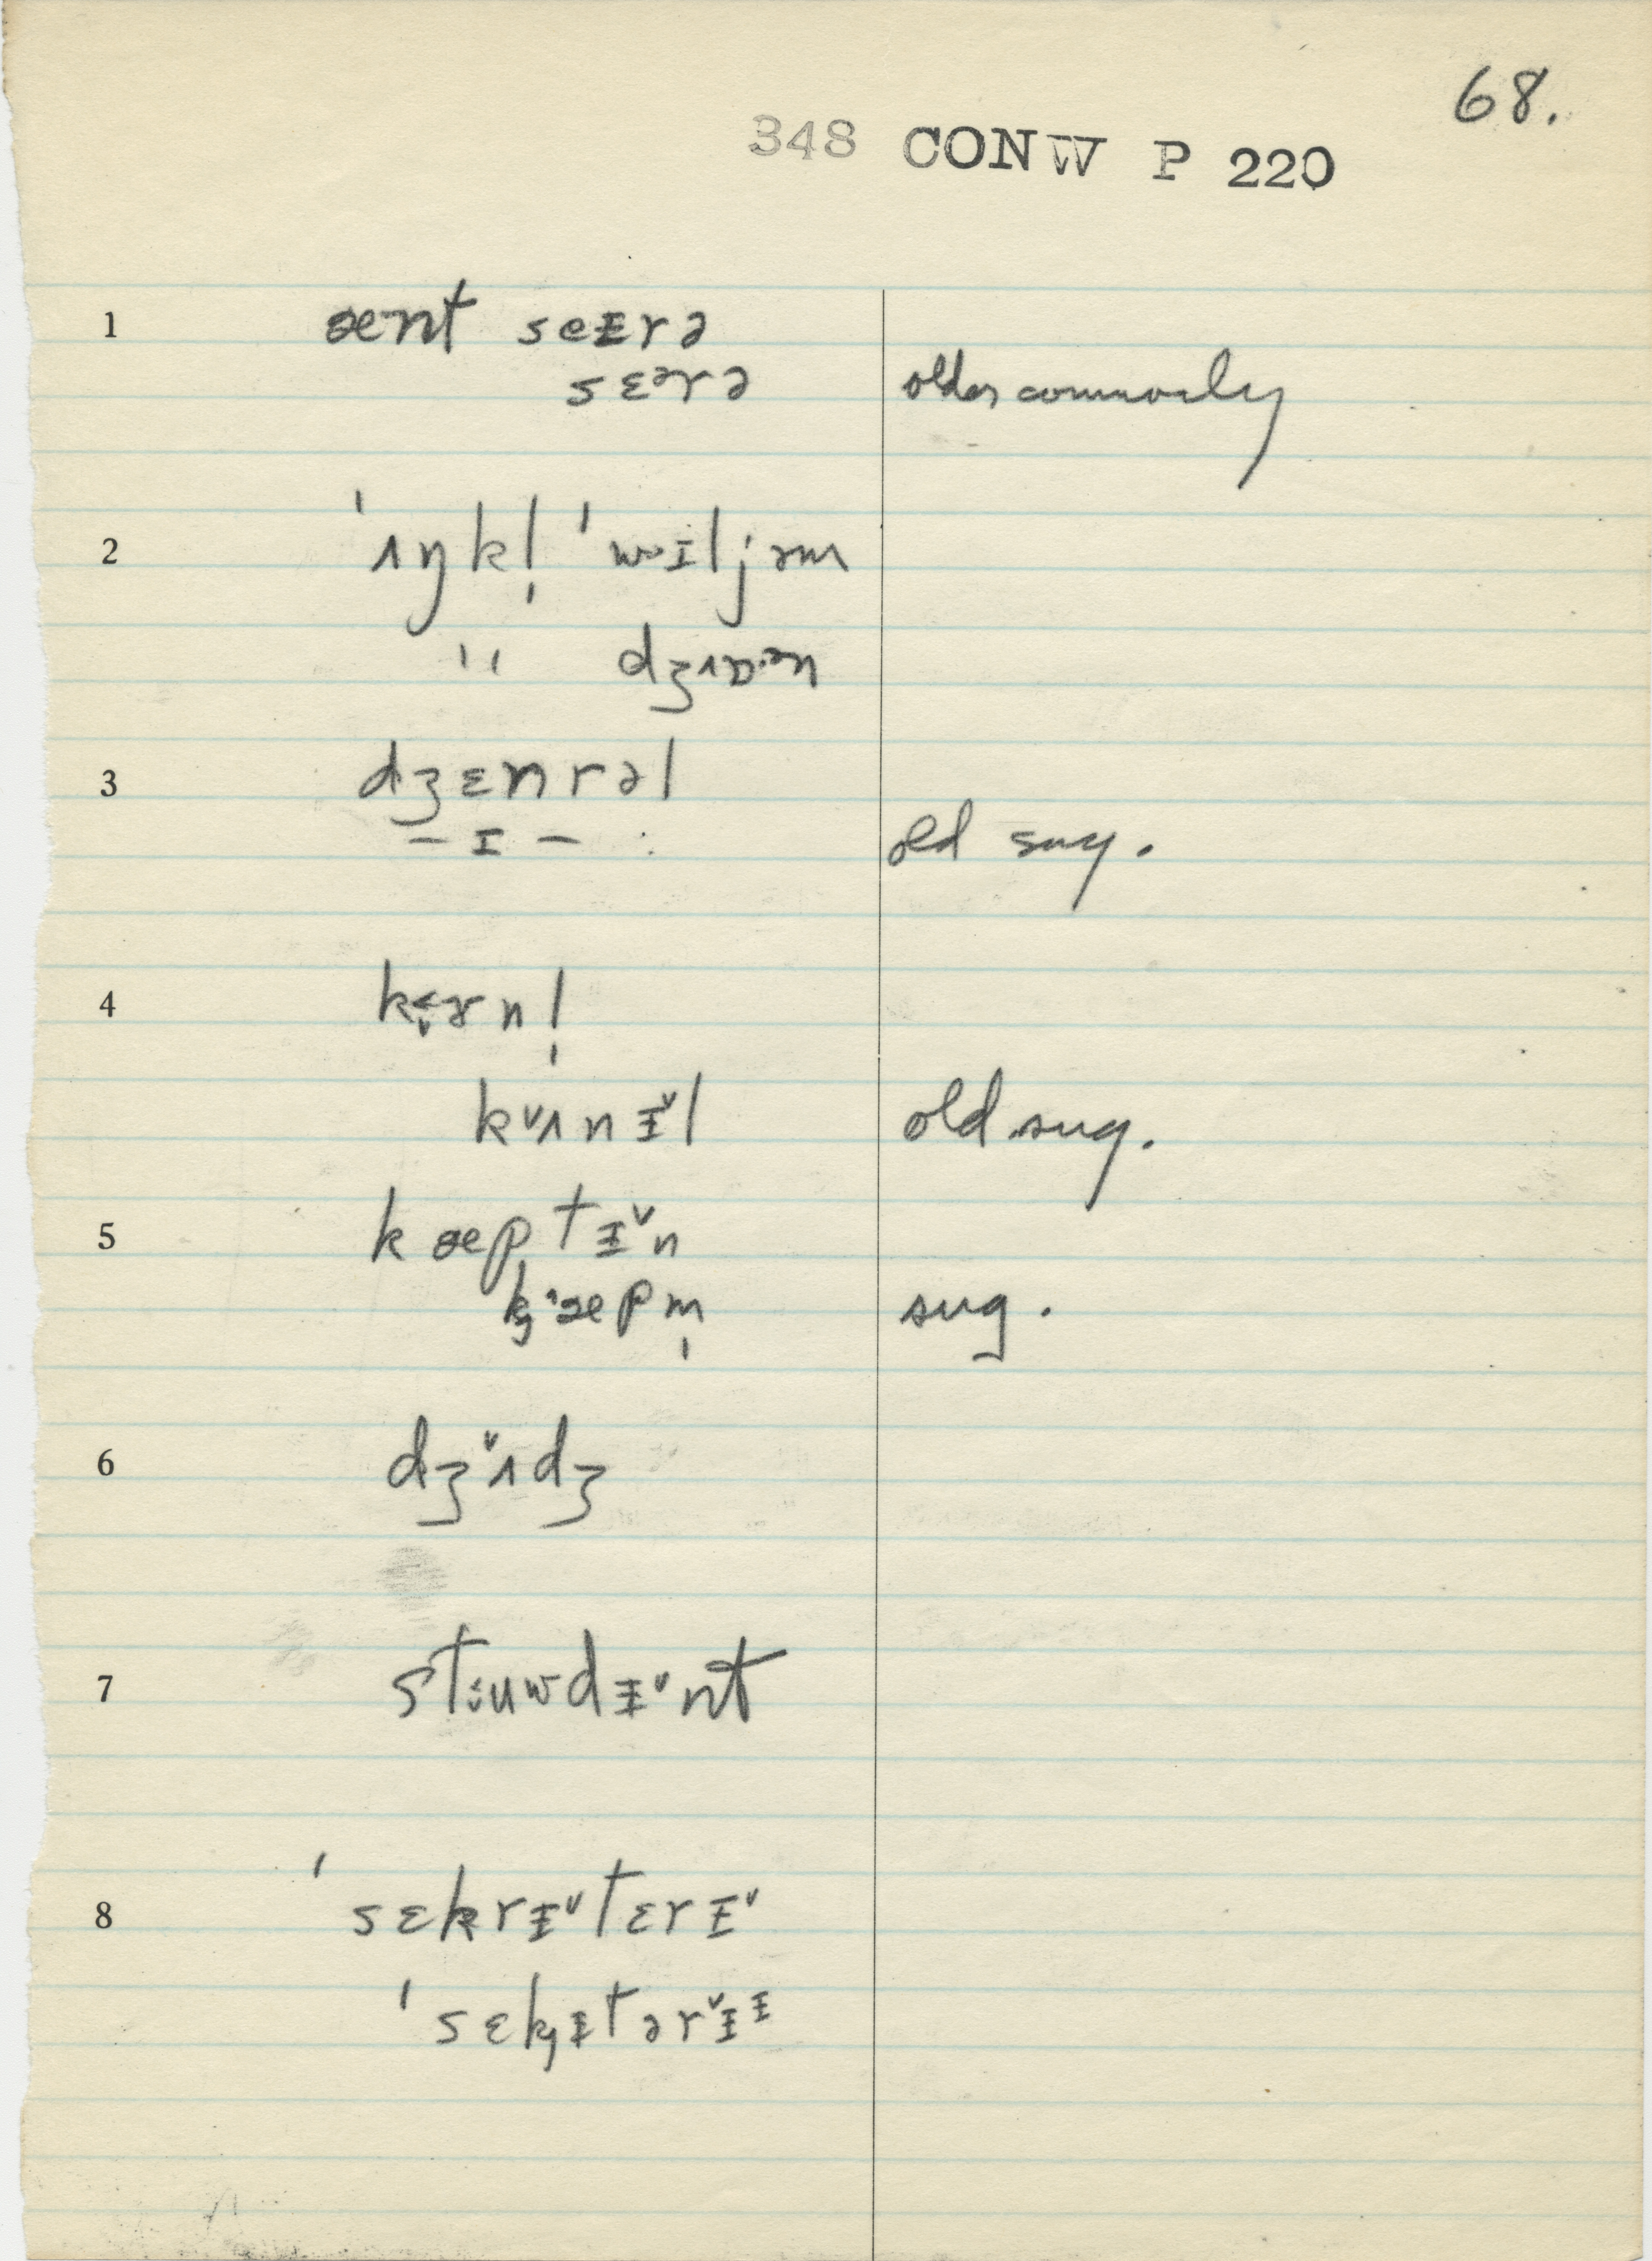 68.
348 CONW P 220
1 ænt seɪrə
sɛᵊrə older commonly
2 ˈʌŋkl̩ ˈwɪljəm
" dʒɒən
3 dʒɛnrəl
– ɪ – : old sug.
4 kɚnl̩
kᵛʌnɨᵛl old sug.
5 kæptɨᵛn
kæpm̩ sug.
6 dʒᵛʌdʒ
7 stʉwdɨᵛnt
8 ˈsɛkrɨᵛtɛrɨᵛ
ˈsɛkɨtərᵛɨᶤ